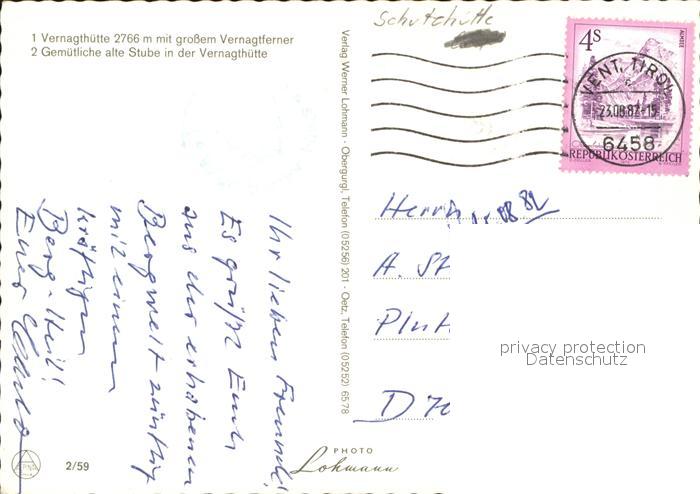 1 Vernagthütte 2766 m mit großem Vernagtferner
2 Gemütliche alte Stube in der Vernagthütte
Schutzhütte
4 S
ALMSEE
VENT, TIROL
c
23.08.82-15
6458
REPUBLIK ÖSTERREICH
Verlag Werner Lohmann · Obergurgl, Telefon (05256) 201 · Oetz, Telefon (05252) 6578
Ihr lieben Freunde!
Es grüßt Euch
aus der erhabenen
Bergwelt
mit einem
kräftigen
Berg-Heil!
Euer
Herrn
08 82
A. St
D 70
privacy protection
Datenschutz
2/59
PHOTO
Lohmann